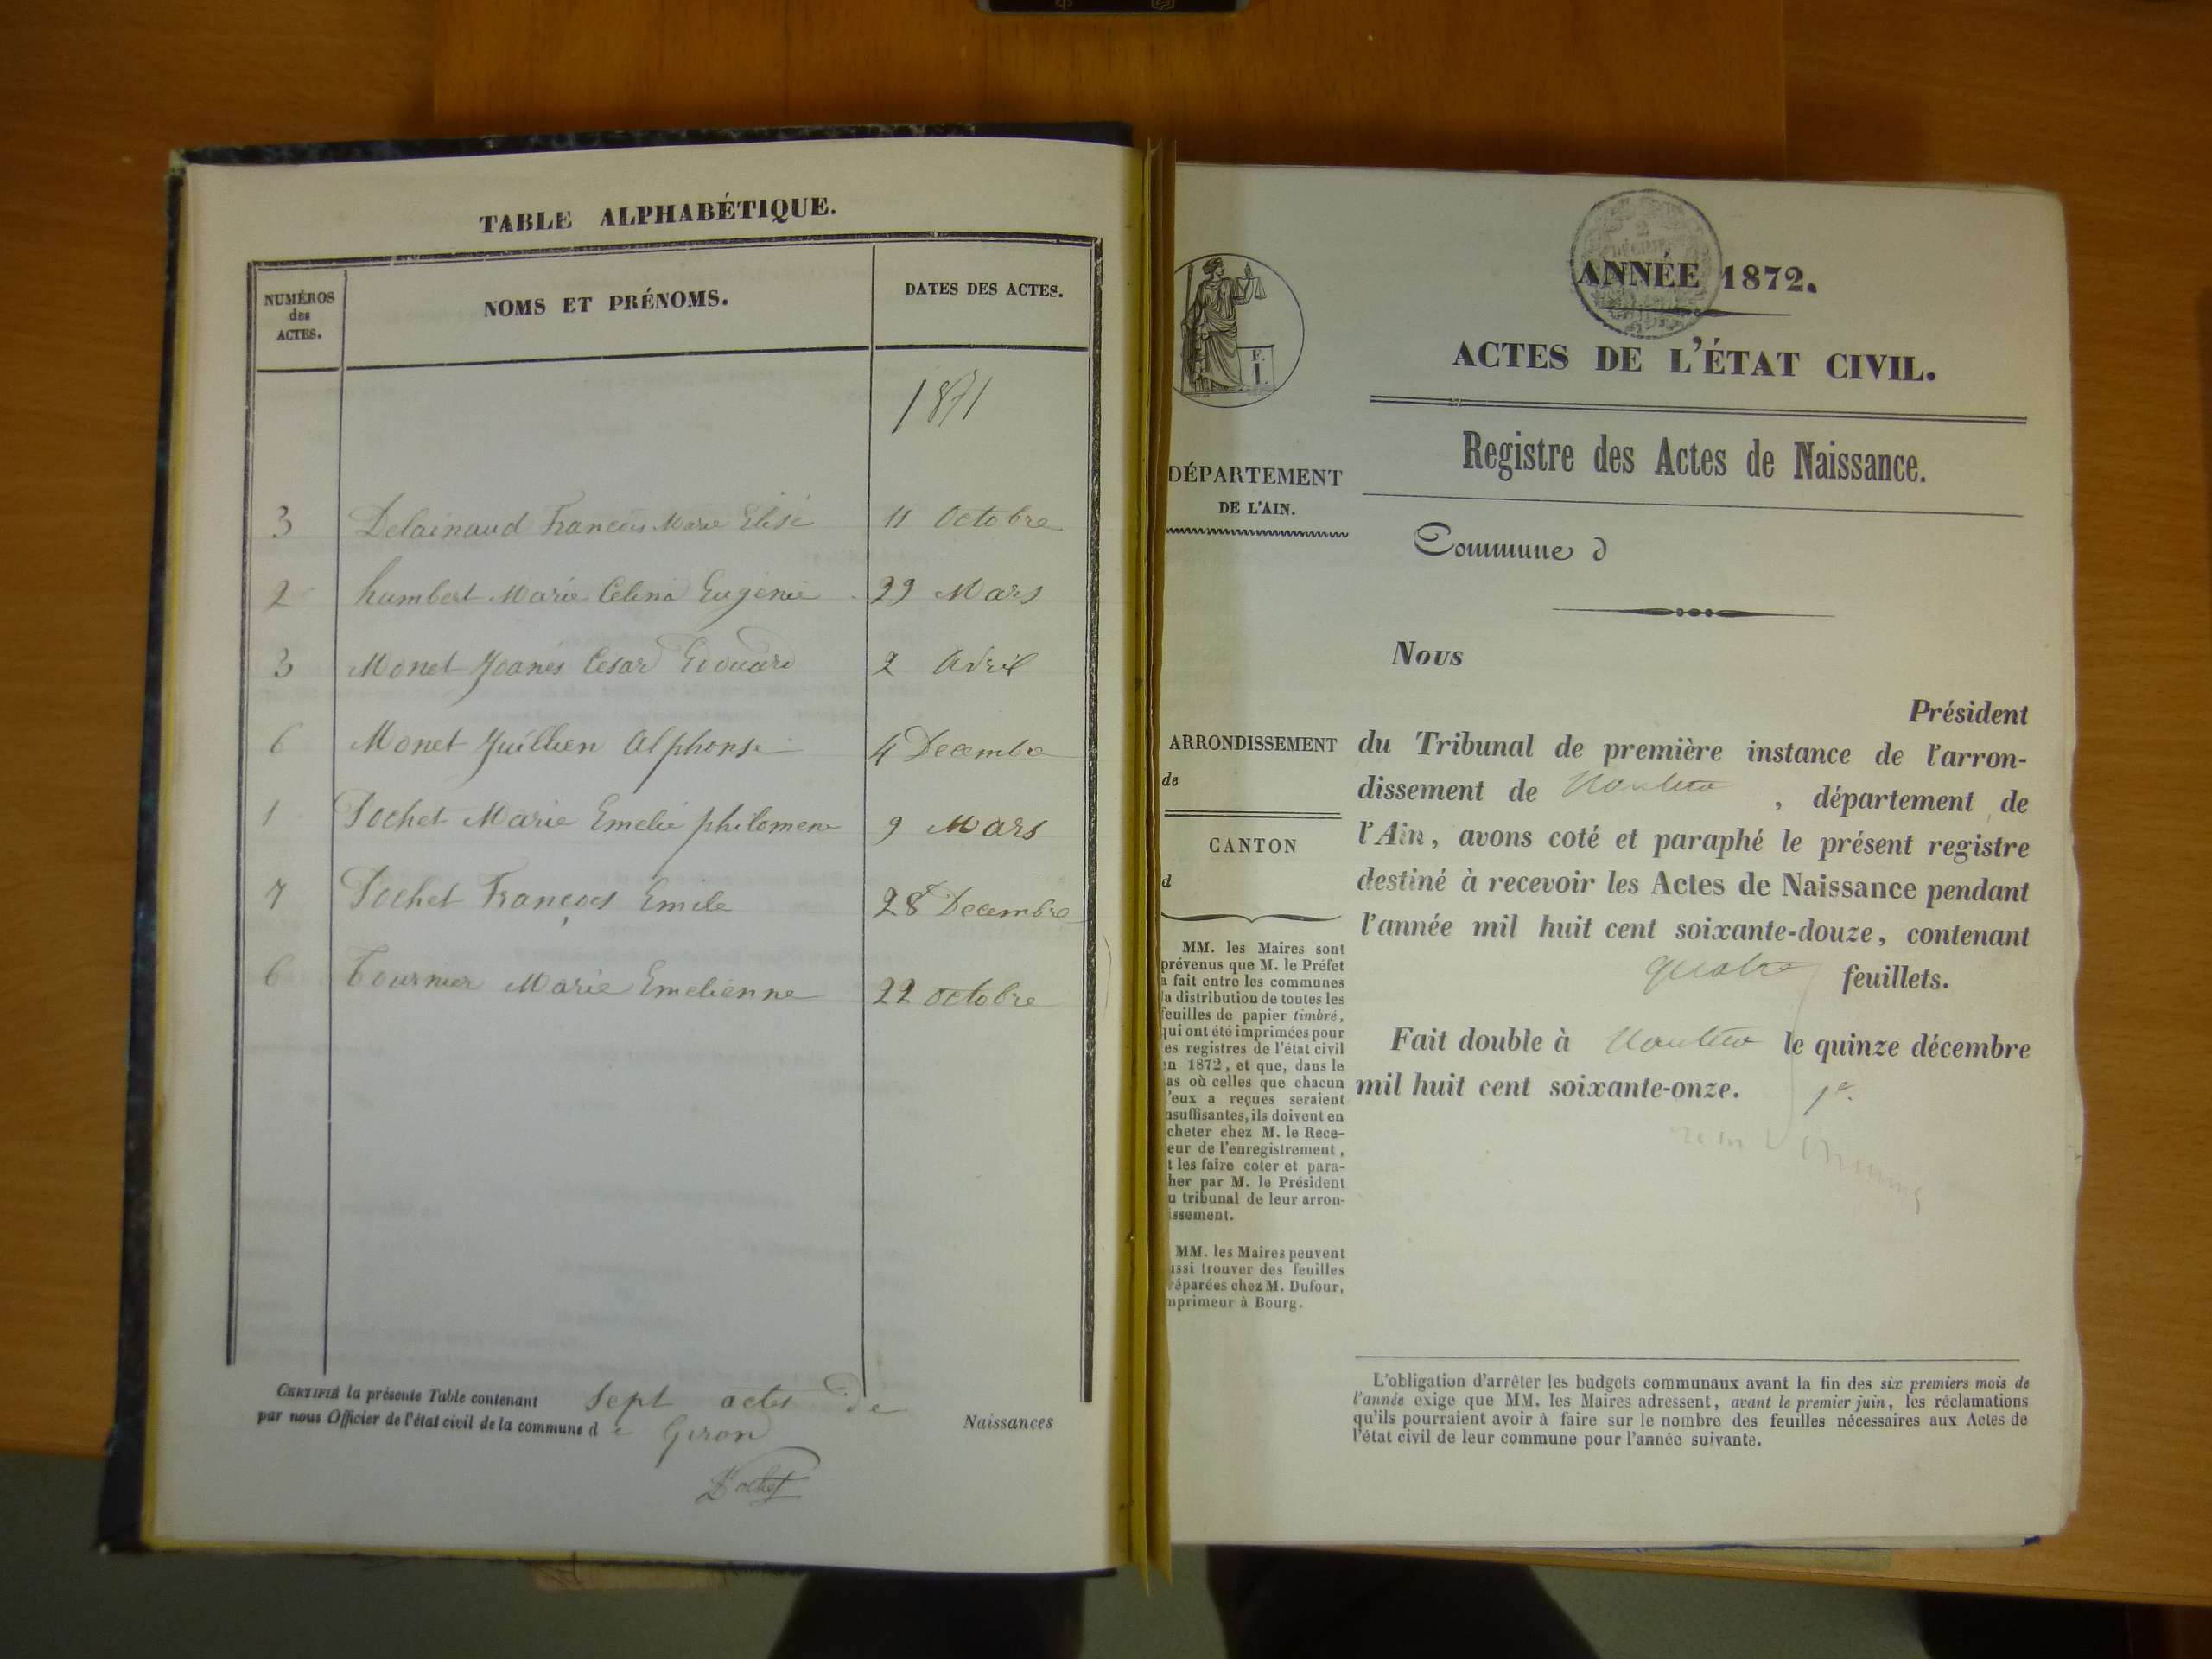 TABLE ALPHABÉTIQUE.
NUMÉROS
des
ACTES.
NOMS ET PRÉNOMS.
DATES DES ACTES.
1871
3 Delainaud Francois Marie Elisé 11 Octobre
2 humbert Marie Celina Eugenie 29 Mars
3 Monet Joanes Cesar Edouard 2 Avril
6 Monet Juillien Alphonse 4 Decembre
1 Pochet Marie Emelie philomene 9 Mars
7 Pochet François Emile 28 Decembre
6 Tournier Marie Emelienne 22 octobre
CERTIFIÉ la présente Table contenant sept actes de
Naissances
par nous Officier de l'état civil de la commune de Giron
Pochet
2
ANNÉE 1872.
ACTES DE L'ÉTAT CIVIL.
Registre des Actes de Naissance.
F.
I.
DÉPARTEMENT
DE L'AIN.
Commune d
Nous
Président
du Tribunal de première instance de l'arron-
dissement de Nantua, département de
l'Ain, avons coté et paraphé le présent registre
destiné à recevoir les Actes de Naissance pendant
l'année mil huit cent soixante-douze, contenant
quatre feuillets.
Fait double à Nantua le quinze décembre
mil huit cent soixante-onze.
1er
ARRONDISSEMENT
de
CANTON
d
MM. les Maires sont
prévenus que M. le Préfet
a fait entre les communes
la distribution de toutes les
feuilles de papier timbré,
qui ont été imprimées pour
es registres de l'état civil
en 1872, et que, dans le
as où celles que chacun
'eux a reçues seraient
nsuffisantes, ils doivent en
cheter chez M. le Rece-
eur de l'enregistrement,
t les faire coter et para-
her par M. le Président
u tribunal de leur arron-
issement.
MM. les Maires peuvent
ussi trouver des feuilles
réparées chez M. Dufour,
mprimeur à Bourg.
L'obligation d'arrêter les budgets communaux avant la fin des six premiers mois de
l'année exige que MM. les Maires adressent, avant le premier juin, les réclamations
qu'ils pourraient avoir à faire sur le nombre des feuilles nécessaires aux Actes de
l'état civil de leur commune pour l'année suivante.